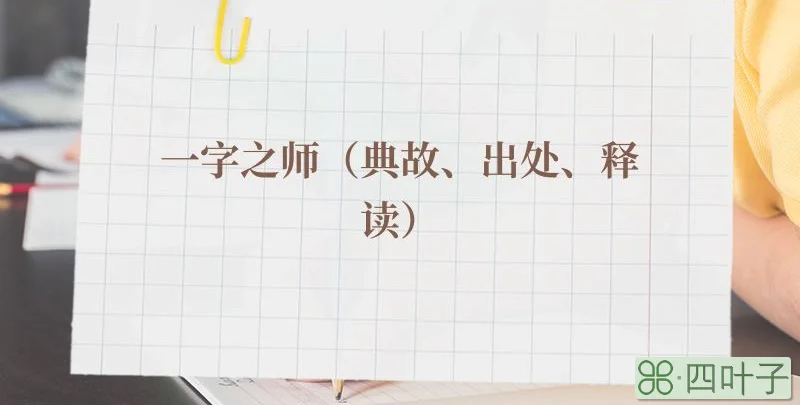 一字之师（典故、出处、释
读）
四叶子